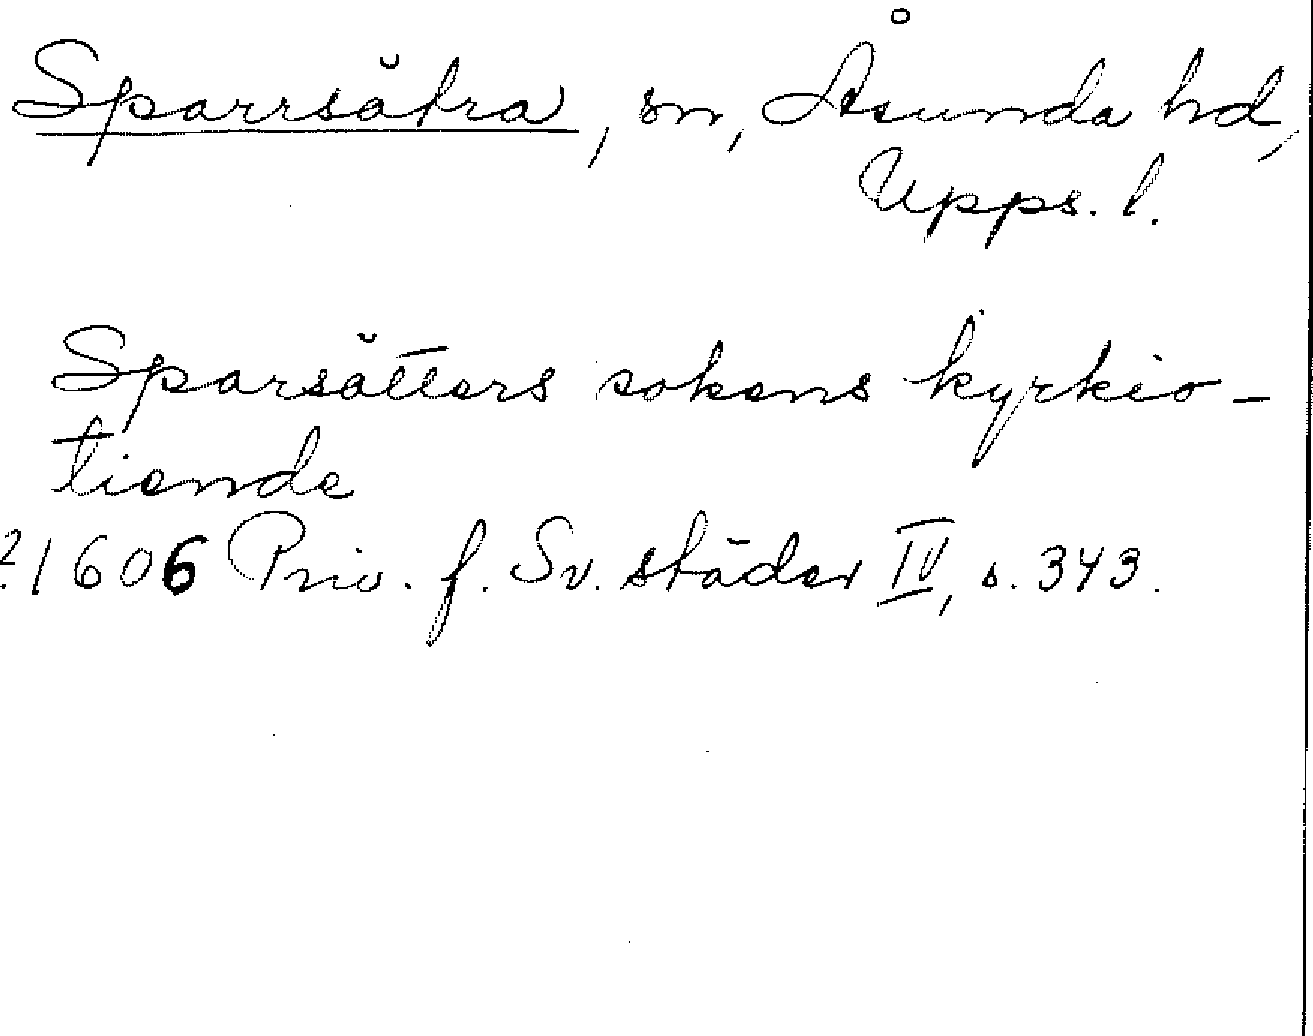 Sparrsätra, sn, Åsunda hd,
Upps. l.
Sparsätters sokens kyrkio-
tiende
21606 Priv. f. Sv. städer IV, s. 343.